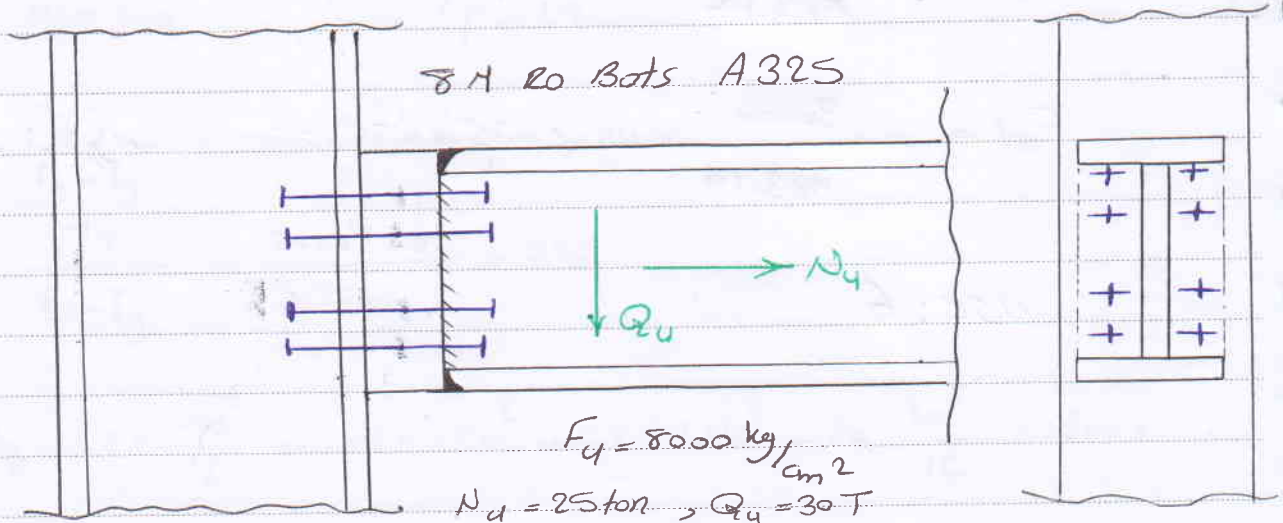 8 M 20 Bots A325
Nu
Qu
Fu = 8000 kg/cm2
Nu = 25 ton , Qu = 30 T